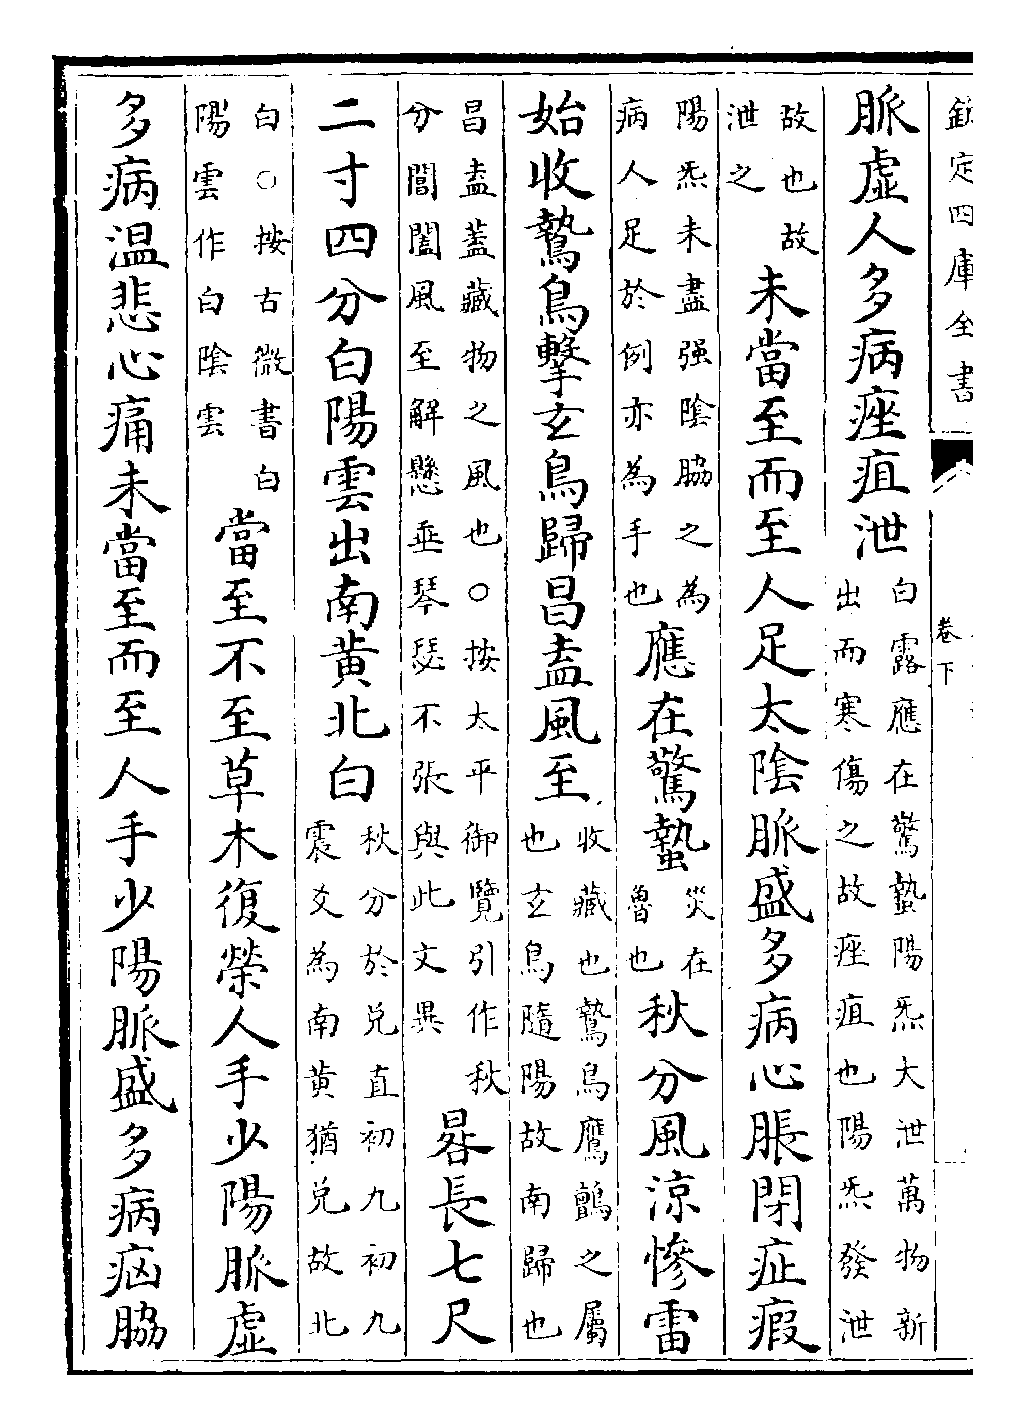 欽定四庫全書
卷下
脈虛人多病痤疽泄白露應在驚蟄陽炁大泄萬物新
出而寒傷之故痤疽也陽炁發泄
故也故
泄之未當至而至人足太陰脈盛多病心脹閉症瘕
陽炁未盡强陰脇之為
病人足於例亦為手也應在驚蟄災在
魯也秋分風涼慘雷
始收鷙鳥擊玄鳥歸昌盍風至收藏也鷙鳥鷹鸇之屬
也玄鳥隨陽故南歸也
昌盍蓋藏物之風也○按太平御覽引作秋
分閶闔風至解懸垂琴瑟不張與此文異晷長七尺
二寸四分白陽雲出南黄北白秋分於兌直初九初九
震爻為南黄猶兌故北
白○按古微書白
陽雲作白陰雲當至不至草木復榮人手少陽脈虛
多病温悲心痛未當至而至人手少陽脈盛多病㐫脇